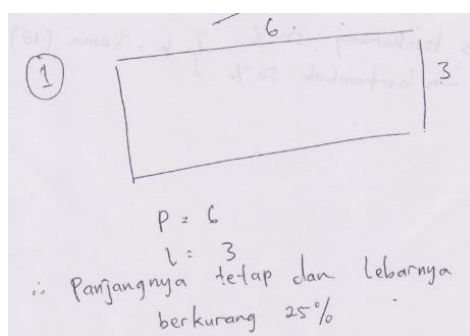 6
① 3
P = 6
l = 3
∴ Panjangnya tetap dan lebarnya
berkurang 25%